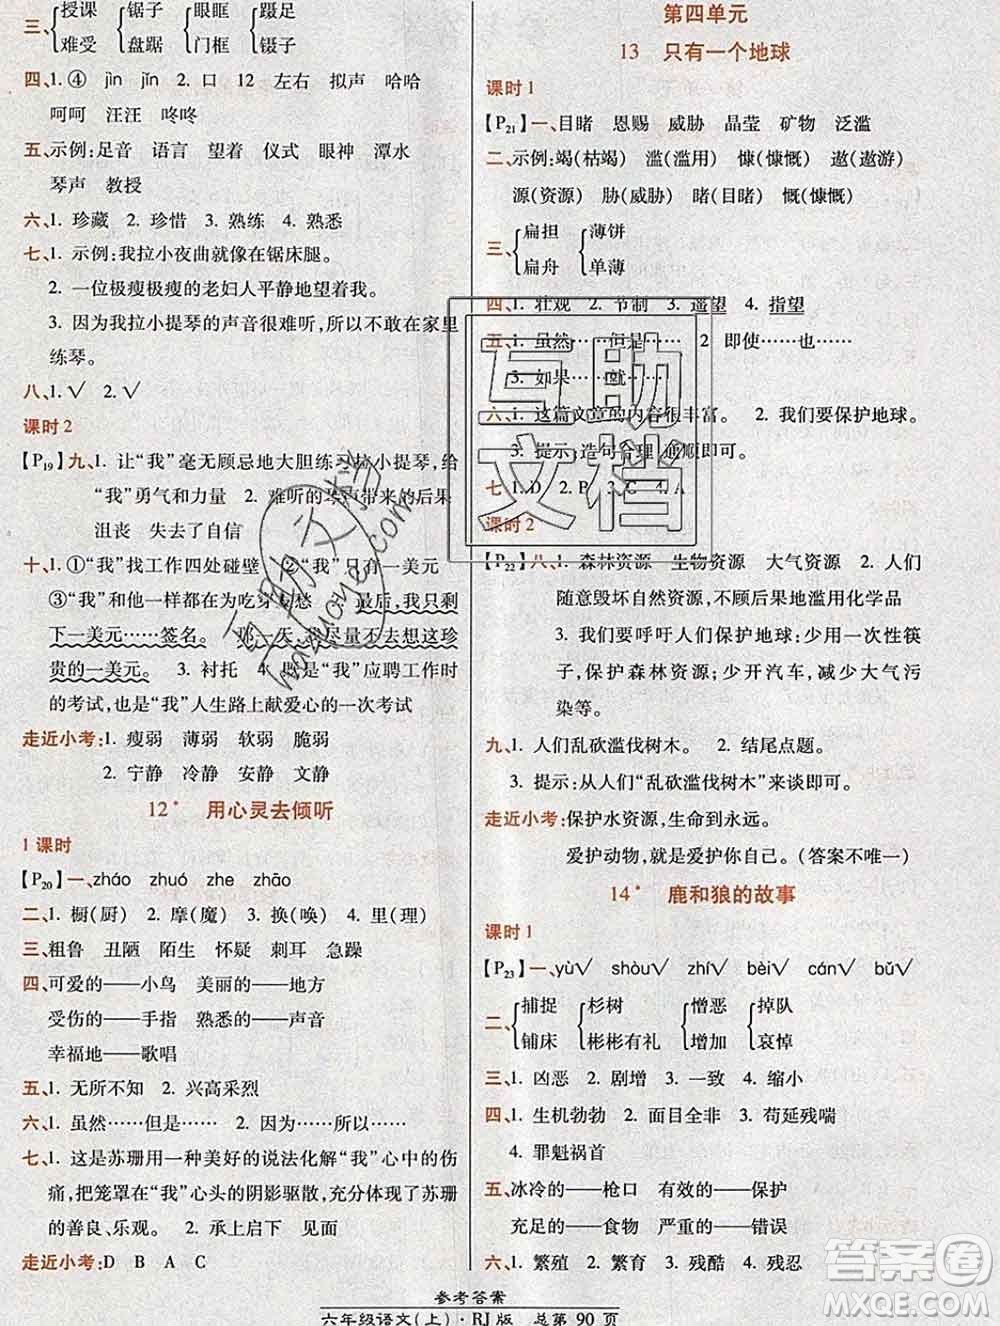 三、授课 锯子 眼眶 蹑足
难受 盘踞 门框 镊子
四、1. ④ jìn jǐn 2. 口 12 左右 拟声 哈哈
呵呵 汪汪 咚咚
五、示例:足音 语言 望着 仪式 眼神 潭水
琴声 教授
六、1. 珍藏 2. 珍惜 3. 熟练 4. 熟悉
七、1. 示例:我拉小夜曲就像在锯床腿。
2. 一位极瘦极瘦的老妇人平静地望着我。
3. 因为我拉小提琴的声音很难听,所以不敢在家里
练琴。
八、1.√ 2.√
课时2
【P19】九、1. 让“我”毫无顾忌地大胆练习拉小提琴,给
“我”勇气和力量 2. 难听的琴声带来的后果
沮丧 失去了自信
十、1. ①“我”找工作四处碰壁 ②“我”只有一美元
③“我”和他一样都在为吃穿发愁 2. 最后,我只剩
下一美元……签名。 那一天,我尽量不去想这珍
贵的一美元。 3. 衬托 4. 既是“我”应聘工作时
的考试,也是“我”人生路上献爱心的一次考试
走近小考:1. 瘦弱 薄弱 软弱 脆弱
2. 宁静 冷静 安静 文静
12* 用心灵去倾听
1课时
【P20】一、zháo zhuó zhe zhāo
二、1. 橱(厨) 2. 摩(魔) 3. 换(唤) 4. 里(理)
三、粗鲁 丑陋 陌生 怀疑 刺耳 急躁
四、可爱的——小鸟 美丽的——地方
受伤的——手指 熟悉的——声音
幸福地——歌唱
五、1. 无所不知 2. 兴高采烈
六、1. 虽然……但是…… 2. 因为……所以……
七、1. 这是苏珊用一种美好的说法化解“我”心中的伤
痛,把笼罩在“我”心头的阴影驱散,充分体现了苏珊
的善良、乐观。 2. 承上启下 见面
走近小考:D B A C
第四单元
13 只有一个地球
课时1
【P21】一、目睹 恩赐 威胁 晶莹 矿物 泛滥
二、示例:竭(枯竭) 滥(滥用) 慷(慷慨) 遨(遨游)
源(资源) 胁(威胁) 睹(目睹) 慨(慷慨)
三、扁担 薄饼
扁舟 单薄
四、1. 壮观 2. 节制 3. 遥望 4. 指望
五、1. 虽然……但是…… 2. 即使……也……
3. 如果……就……
六、1. 这篇文章的内容很丰富。 2. 我们要保护地球。
3. 提示:造句合理,通顺即可。
七、1. D 2. B 3. C 4. A
课时2
【P22】八、1. 森林资源 生物资源 大气资源 2. 人们
随意毁坏自然资源,不顾后果地滥用化学品
3. 我们要呼吁人们保护地球:少用一次性筷
子,保护森林资源;少开汽车,减少大气污
染等。
九、1. 人们乱砍滥伐树木。 2. 结尾点题。
3. 提示:从人们“乱砍滥伐树木”来谈即可。
走近小考:保护水资源,生命到永远。
爱护动物,就是爱护你自己。(答案不唯一)
14* 鹿和狼的故事
课时1
【P23】一、yù√ shòu√ zhí√ bèi√ cán√ bǔ√
二、捕捉 杉树 憎恶 掉队
铺床 彬彬有礼 增加 哀悼
三、1. 凶恶 2. 剧增 3. 一致 4. 缩小
四、1. 生机勃勃 2. 面目全非 3. 苟延残喘
4. 罪魁祸首
五、冰冷的——枪口 有效的——保护
充足的——食物 严重的——错误
六、1. 繁殖 2. 繁育 3. 残酷 4. 残忍
参考答案
六年级语文(上)·RJ版 总第 90 页
互助
文档
互助文档
huzhuoye.com
答案圈
MXQE.COM